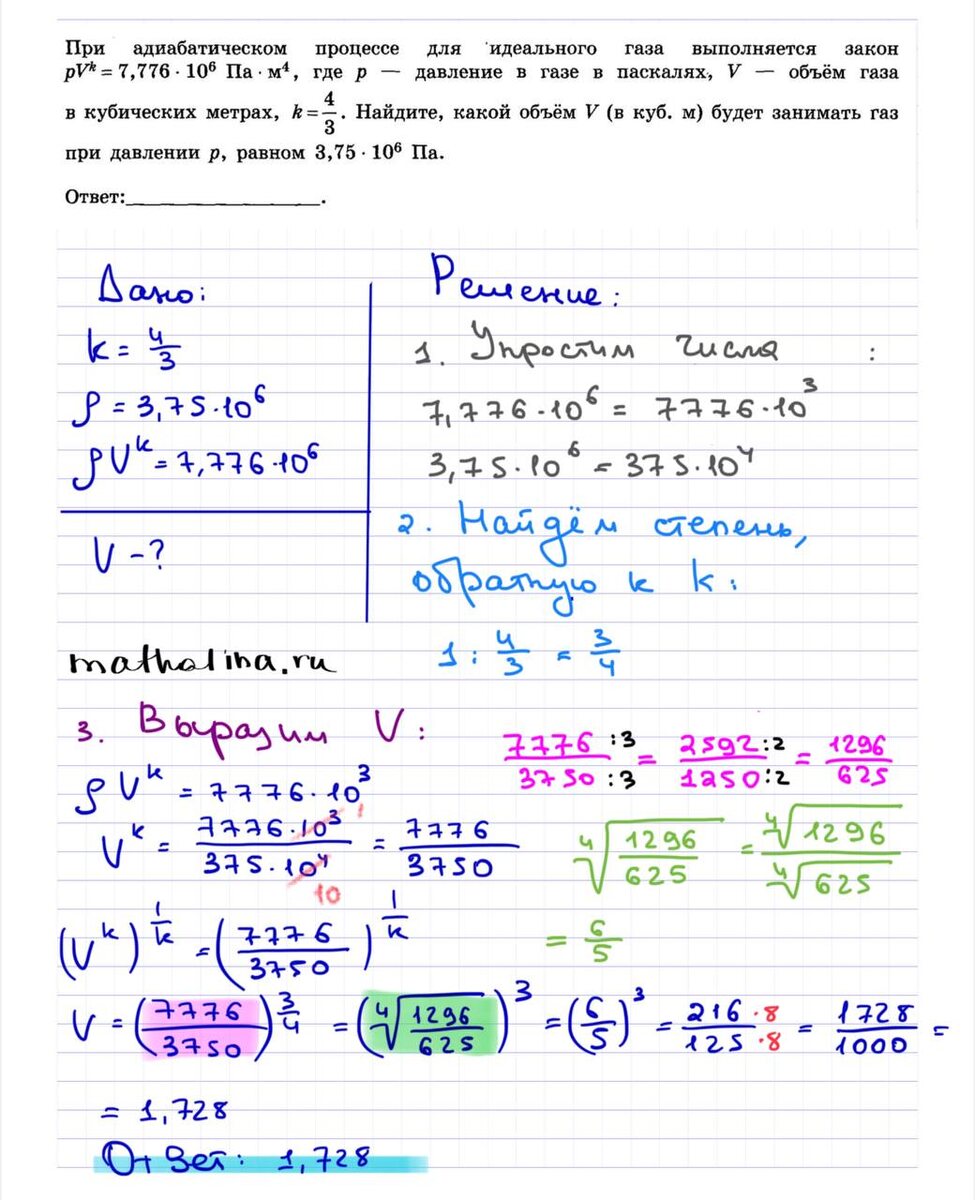 При адиабатическом процессе для идеального газа выполняется закон
pVᵏ = 7,776 · 10⁶ Па · м⁴, где p — давление в газе в паскалях, V — объём газа
в кубических метрах, k = 4/3. Найдите, какой объём V (в куб. м) будет занимать газ
при давлении p, равном 3,75 · 10⁶ Па.
Ответ:__________________.
Дано:
k = 4/3
p = 3,75·10⁶
pVᵏ = 7,776·10⁶
V - ?
mathalina.ru
Решение:
1. Упростим числа :
7,776·10⁶ = 7776·10³
3,75·10⁶ = 375·10⁴
2. Найдём степень,
обратную к k:
1 : 4/3 = 3/4
3. Выразим V:
pVᵏ = 7776·10³
Vᵏ = 7776·10³/375·10⁴ = 7776/3750
1
10
(Vᵏ)^(1/k) = (7776/3750)^(1/k)
7776:3/3750:3 = 2592:2/1250:2 = 1296/625
⁴√(1296/625) = ⁴√1296/⁴√625
= 6/5
V = (7776/3750)^(3/4) = (⁴√(1296/625))³ = (6/5)³ = 216·8/125·8 = 1728/1000 =
= 1,728
Ответ: 1,728